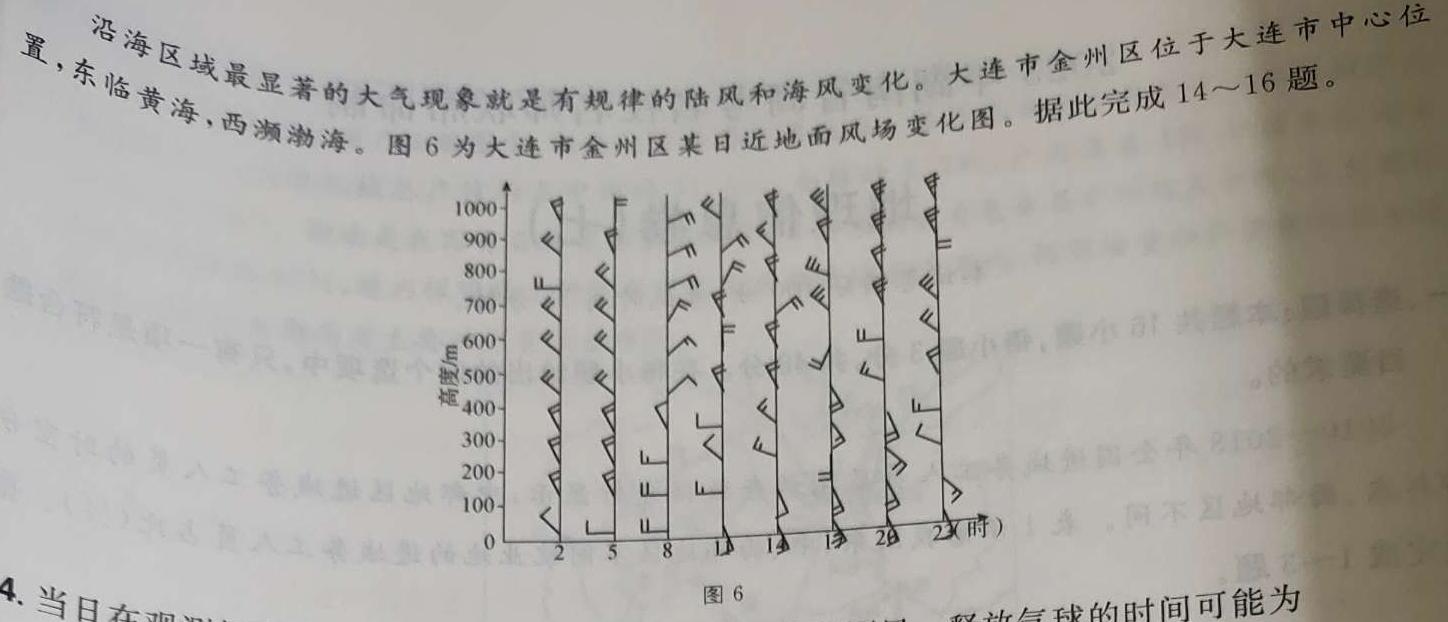 沿海区域最显著的大气现象就是有规律的陆风和海风变化。大连市金州区位于大连市中心位
置,东临黄海,西濒渤海。图6为大连市金州区某日近地面风场变化图。据此完成14~16题。
1000
900
800
700
600
500
400
300
200
100
0
高度/m
2 5 8 11 14 17 20 23(时)
图6
4. 当日在观测 释放气球的时间可能为